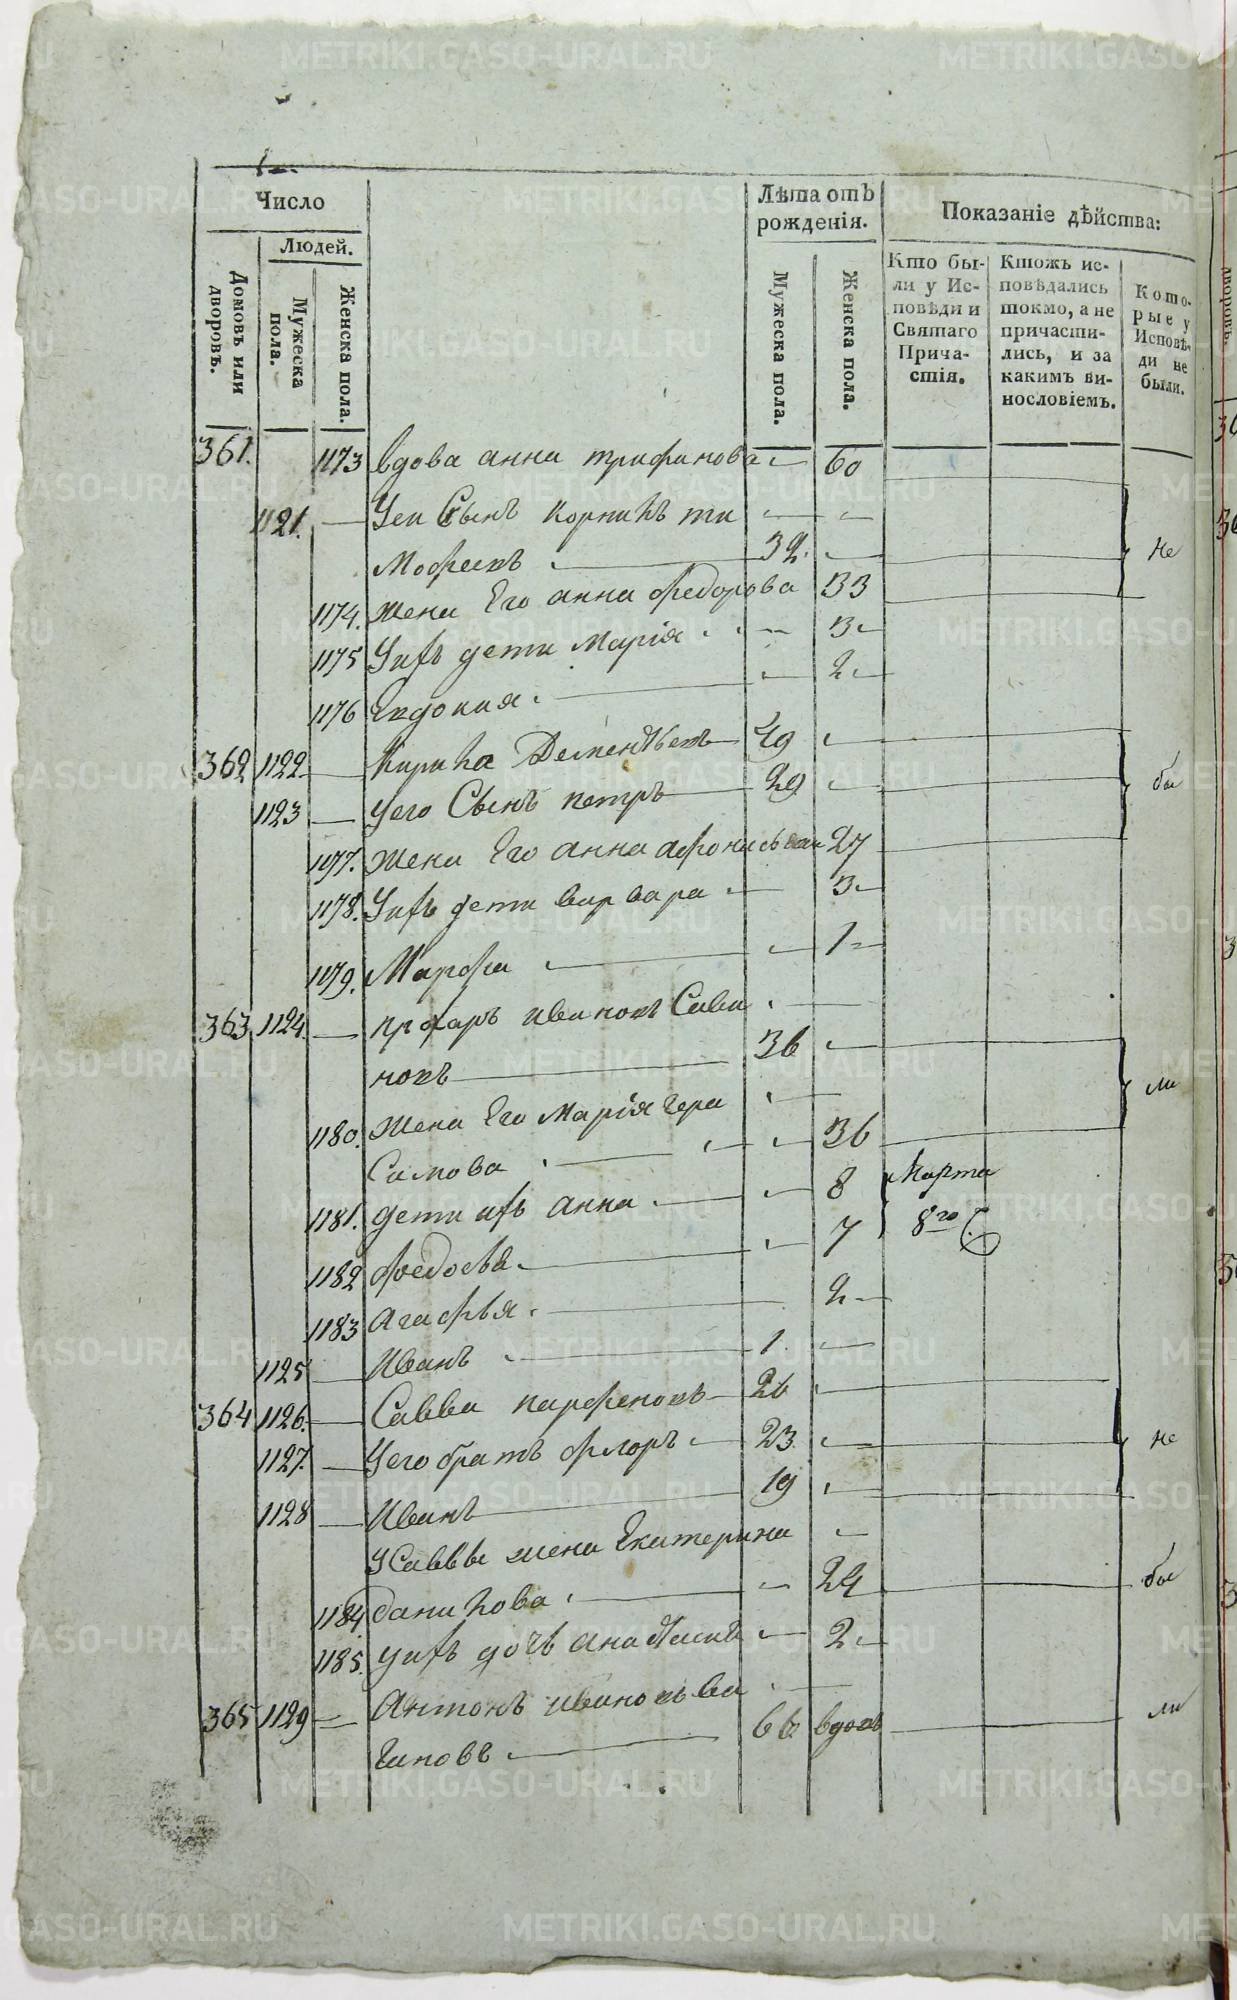 Число
Людей.
Домовъ или дворовъ.
Мужеска пола.
Женска пола.
Лѣта отъ рожденія.
Мужеска пола.
Женска пола.
Показаніе дѣйства:
Кто бы-
ли у Ис-
повѣди и
Святаго
Прича-
стія.
Ктожъ ис-
повѣдались
токмо, а не
причасти-
лись, и за
какимъ ви-
нословіемъ.
Кото-
рые у
Исповѣ-
ди не
были.
361. 1173 вдова анна трифанова 60
1121. Уеи Сынъ корнилъ ти
мофеевъ 32. не
1174. жена Его анна федорова 33
1175 Уихъ дети Марія 3
1176 Евдокия 2
362 1122 Кирила Дементьевъ 49
1123 Уего Сынъ петръ 29 бы
1177. жена Его анна афонасьева 27
1178. Уихъ дети варвара 3
1179. Марфа 1
363 1124 прохаръ ивановъ Сави
новъ 36 ли
1180. жена Его Марія Гера
Симова 36
1181. дети ихъ анна 8 Марта
1182 федосья 7 8го
1183 агафья 2
1125 Иванъ 1.
364 1126. Савва парфеновъ 26
1127. Уего братъ флоръ 23. не
1128 Иванъ 19
УСаввы жена Екатерина
1184 данилова 24 бы
1185. уихъ дочь анастасия 2
365 1129 Антонъ ивановъ ва
гановъ 66 вдовъ ли
METRIKI.GASO-URAL.RU